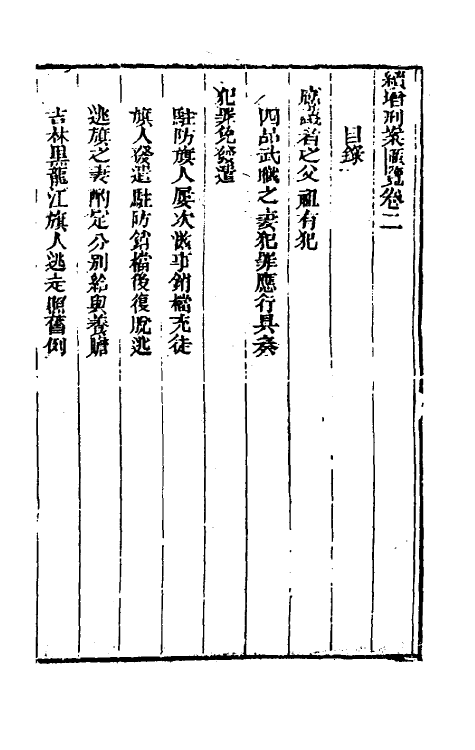 續增刑案匯覽卷二
目錄
應議者之父祖有犯
四品武職之妻犯罪應行具奏
犯罪免發遣
駐防旗人屢次滋事銷檔充徒
旗人發遣駐防銷檔後復脫逃
逃旗之妻酌定分別給與養贍
吉林黑龍江旗人逃走照舊例